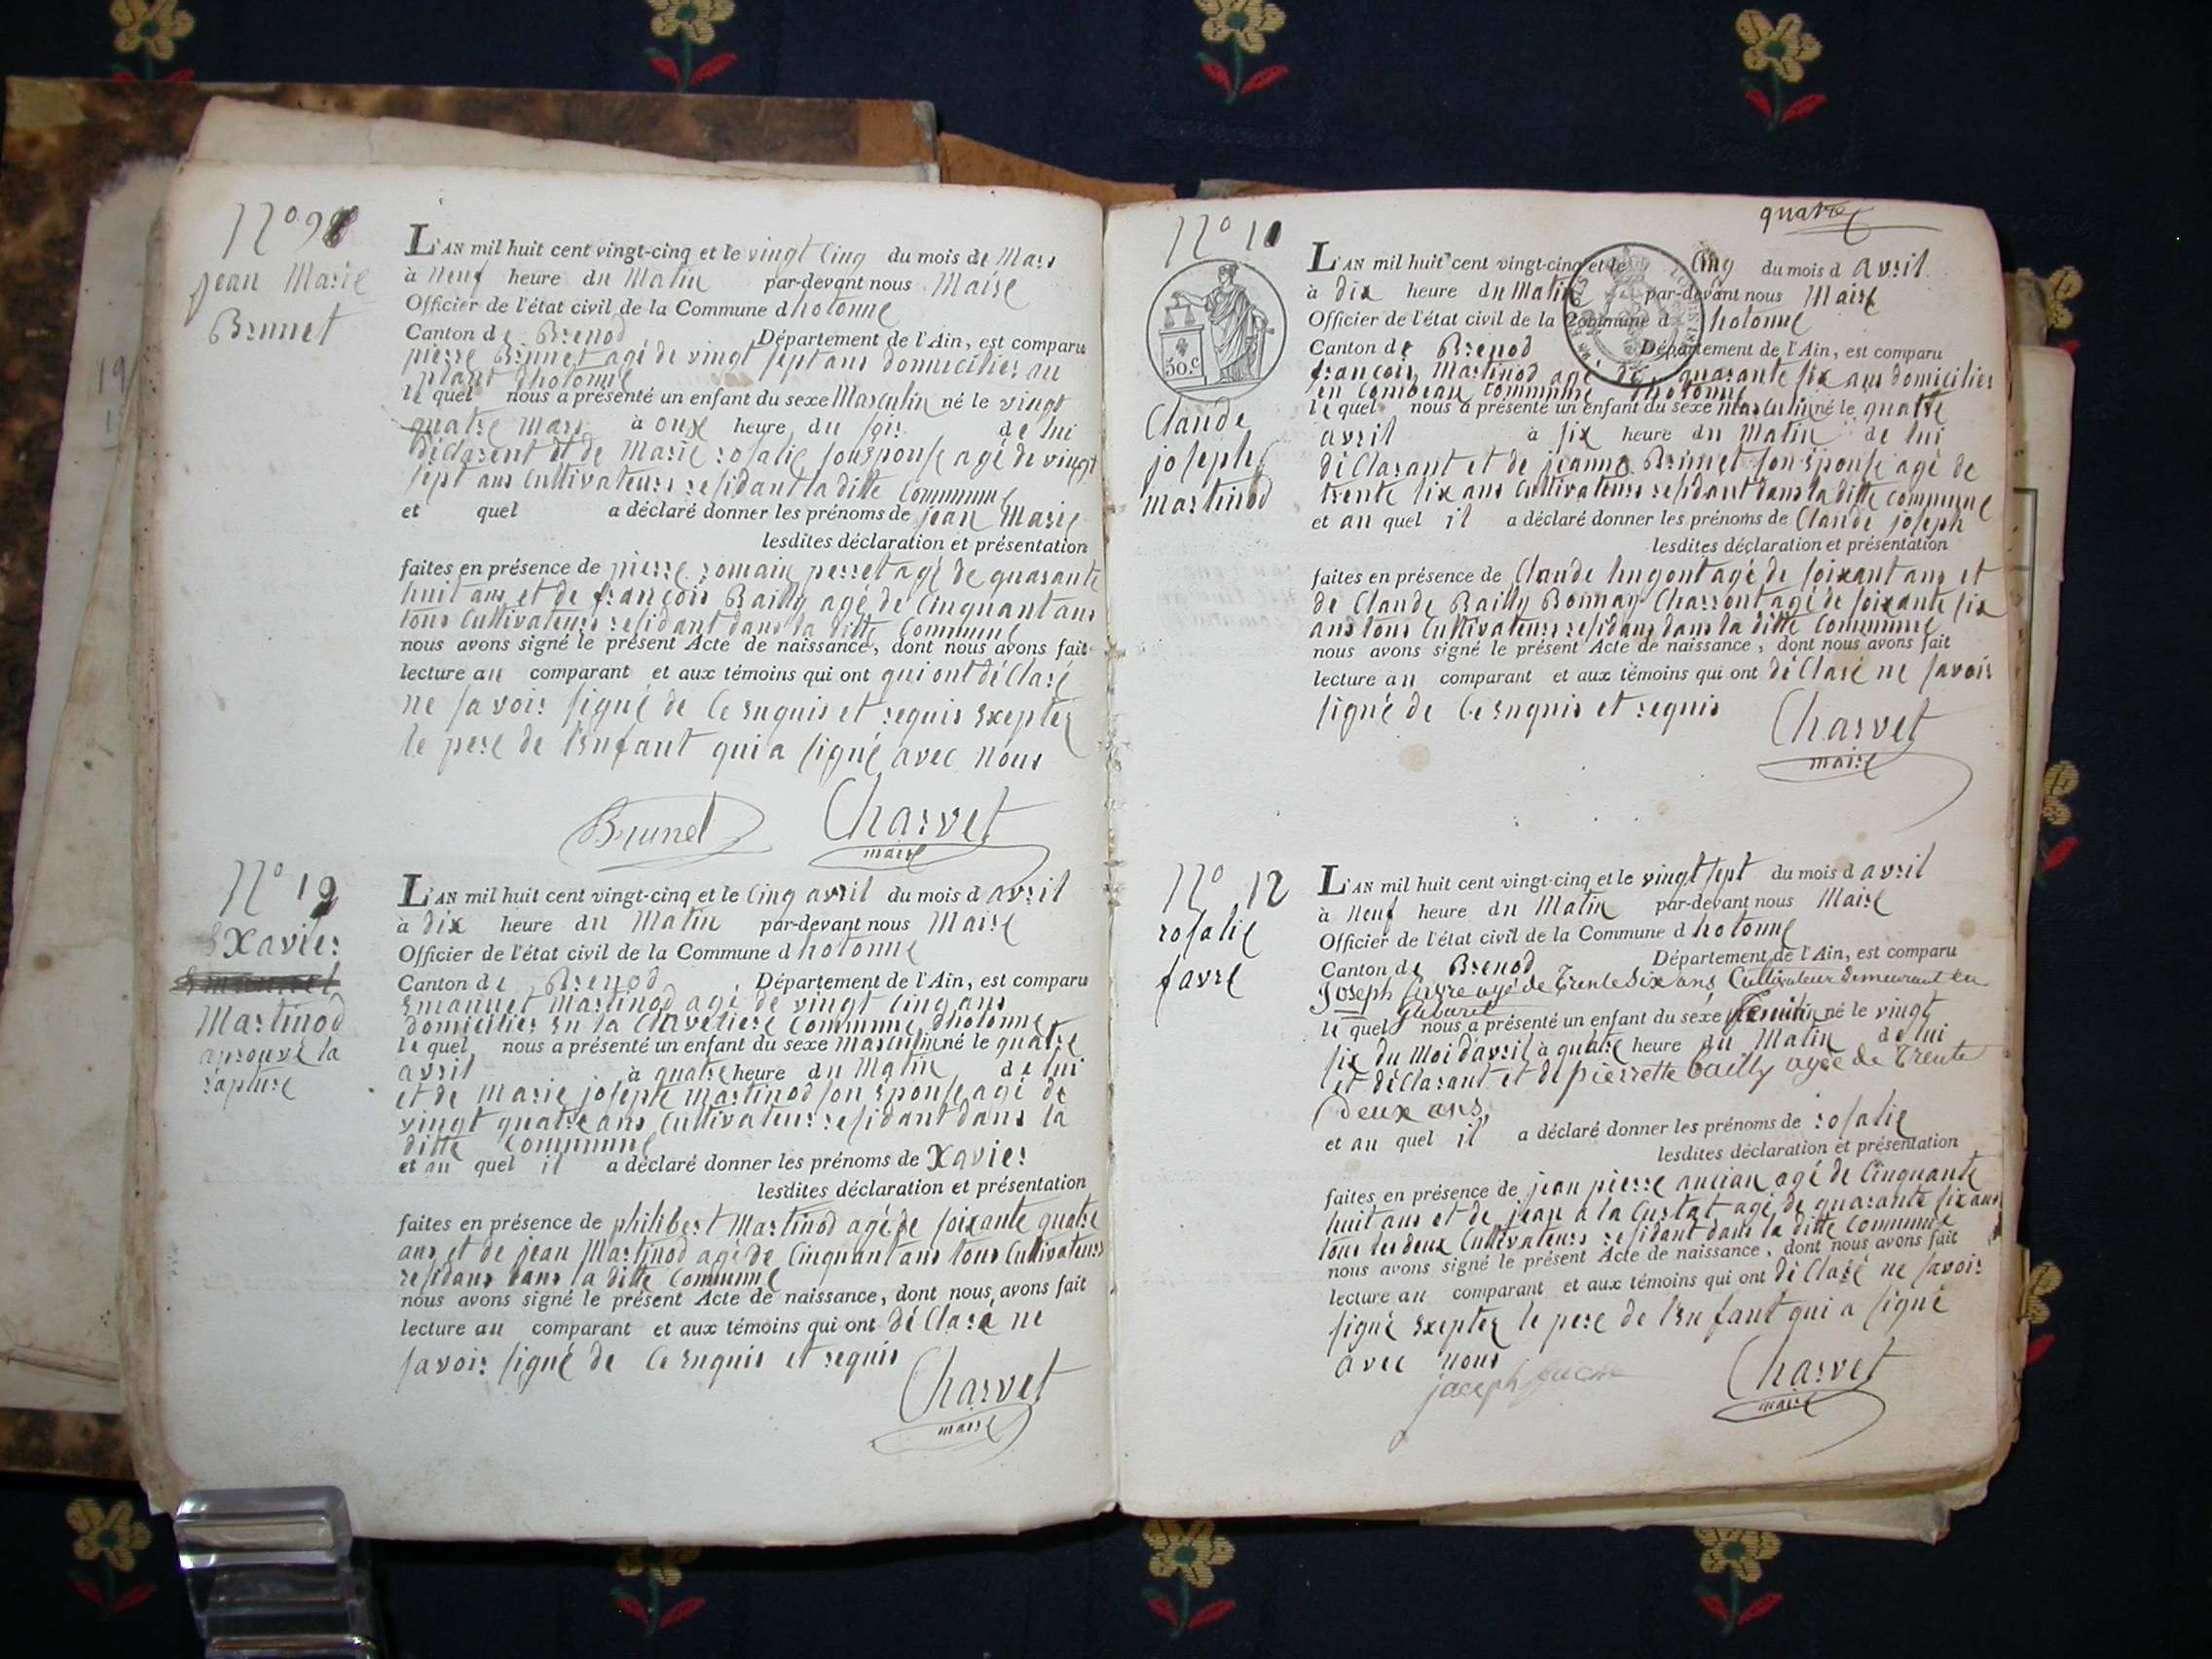 N° 9
jean Marie
Brunet
L'AN mil huit cent vingt-cinq et le vingt Cinq du mois de Mars
à Neuf heure du Matin par-devant nous Maire
Officier de l'état civil de la Commune d hotonne
Canton de Brenod Département de l'Ain, est comparu
pierre Brunet agé de vingt sept ans domicilier au
plant d'hotonne
le quel nous a présenté un enfant du sexe Masculin né le vingt
quatre Mars à onze heure du soir de lui
déClarent et de Marie rosalie son sponse agé de vingt
sept ans Cultivateurs residant la ditte Commune
et quel a déclaré donner les prénoms de jean Marie
lesdites déclaration et présentation
faites en présence de pierre romain perret agé de quarante
huit ans et de françois Bailly agé de Cinquant ans
tous Cultivateurs residant dans la ditte Commune
nous avons signé le présent Acte de naissance, dont nous avons fait
lecture au comparant et aux témoins qui ont qui ont déClaré
ne savoir signé de Ce enquis et requis exepter
le pere de l'enfant qui a signé avec Nous
Brunet Charvet
maire
N° 10
Xavier
Martinod
aprouvé la
rapture
L'AN mil huit cent vingt-cinq et le Cinq avril du mois d avril
à dix heure du Matin par-devant nous Maire
Officier de l'état civil de la Commune d hotonne
Canton de Brenod Département de l'Ain, est comparu
Emanuet Martinod agé de vingt Cinq ans
domicilier en la Claveliere Commune d'hotonne
le quel nous a présenté un enfant du sexe masculin né le quatre
avril à quatre heure du Matin de lui
et de Marie josephte Martinod son éponse agé de
vingt quatre ans Cultivateurs residant dans la
ditte Commune
et au quel il a déclaré donner les prénoms de Xavier
lesdites déclaration et présentation
faites en présence de philibert Martinod agé de soixante quatre
ans et de jean Martinod agé de Cinquant ans tous Cultivateurs
residans dans la ditte Commune
nous avons signé le présent Acte de naissance, dont nous avons fait
lecture au comparant et aux témoins qui ont déClaré ne
savoir signé de Ce enquis et requis
Charvet
maire
quatre
N° 11
50. C
Claude
joseph
martinod
L'AN mil huit cent vingt-cinq et le Cinq du mois d avril
à dix heure du Matin par-devant nous Maire
Officier de l'état civil de la Commune d hotonne
Canton de Brenod Département de l'Ain, est comparu
françois Martinod agé de quarante six ans domicilier
en Commune d'hotonne
le quel nous a présenté un enfant du sexe masculin né le quatre
avril à six heure du Matin de lui
déClarant et de jeanne Brunet son éponse agé de
trente six ans Cultivateurs residant dans la ditte Commune
et au quel il a déclaré donner les prénoms de Claude joseph
lesdites déclaration et présentation
faites en présence de Claude hugont agé de soixant ans et
de Claude Bailly Bonnay Charront agé de soixante six
ans tous Cultivateurs residans dans la ditte Commune
nous avons signé le présent Acte de naissance, dont nous avons fait
lecture au comparant et aux témoins qui ont déClaré ne savoir
signé de Ce enquis et requis
Charvet
maire
N° 12
rosalie
favre
L'AN mil huit cent vingt-cinq et le vingt sept du mois d avril
à Neuf heure du Matin par-devant nous Maire
Officier de l'état civil de la Commune d hotonne
Canton de Brenod Département de l'Ain, est comparu
Joseph favre agé de Trente Six ans, Cultivateur demeurant en
le quel nous a présenté un enfant du sexe feminin né le vingt
six du Moi d'avril à quatre heure du Matin de lui
et déClarant et de pierrette bailly agée de Trente
deux ans,
et au quel il a déclaré donner les prénoms de rosalie
lesdites déclaration et présentation
faites en présence de jean pierre ancian agé de Cinquante
huit ans et de jean a la Custat agé de quarante six ans
tous les deux Cultivateurs residant dans la ditte Commune
nous avons signé le présent Acte de naissance, dont nous avons fait
lecture au comparant et aux témoins qui ont déClaré ne savoir
signé exepter le pere de l'enfant qui a signé
avec nous
joseph favre Charvet
maire